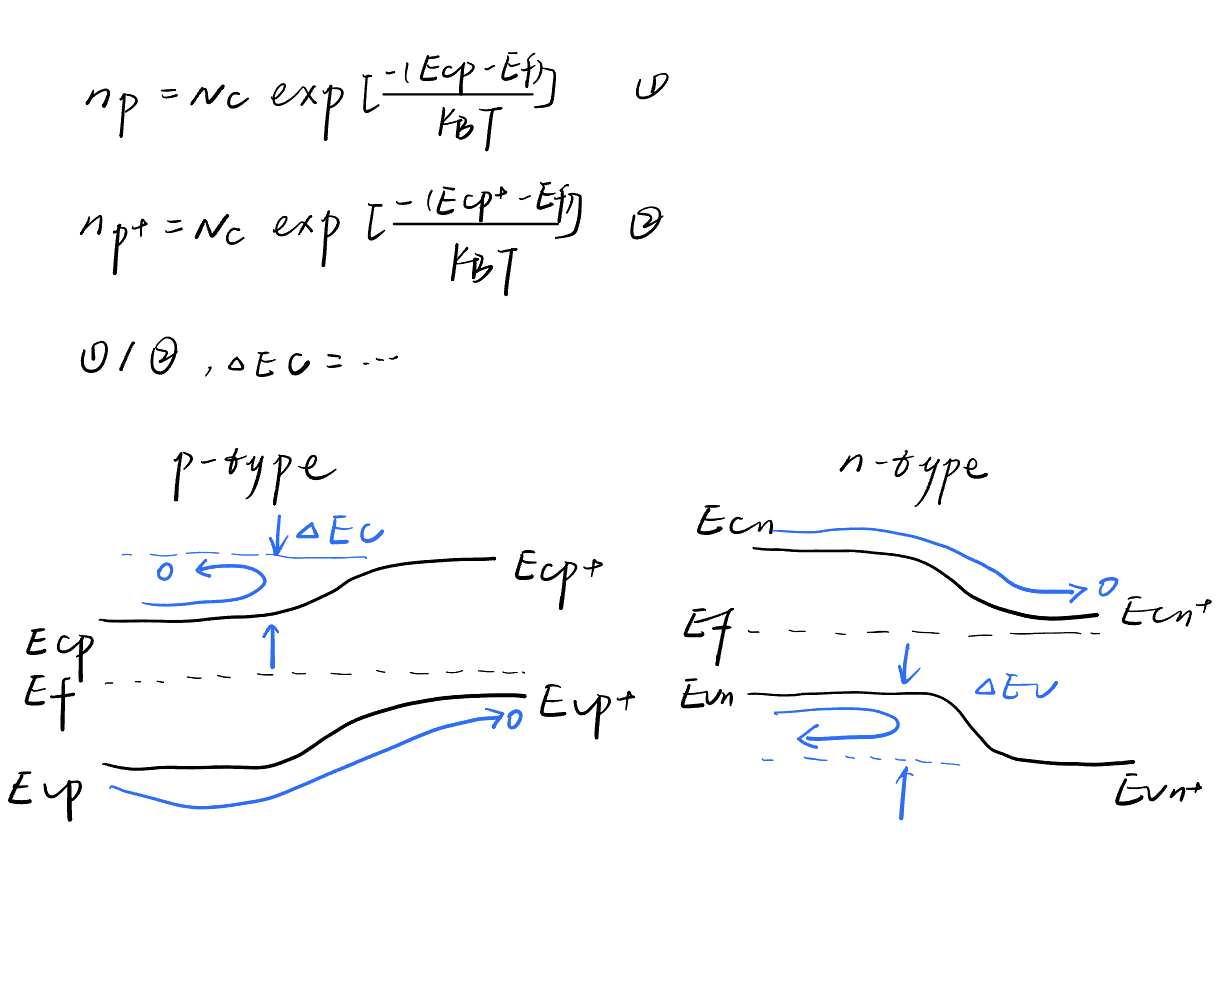 np = Nc exp [-(Ecp-Ef)/KBT] ①
np+ = Nc exp [-(Ecp+-Ef)/KBT] ②
①/②, ΔEC = ...
p-type
ΔEC
Ecp+
Ecp
Ef
Evp+
Evp
n-type
Ecn
Ecn+
Ef
Evn
ΔEV
Evn+